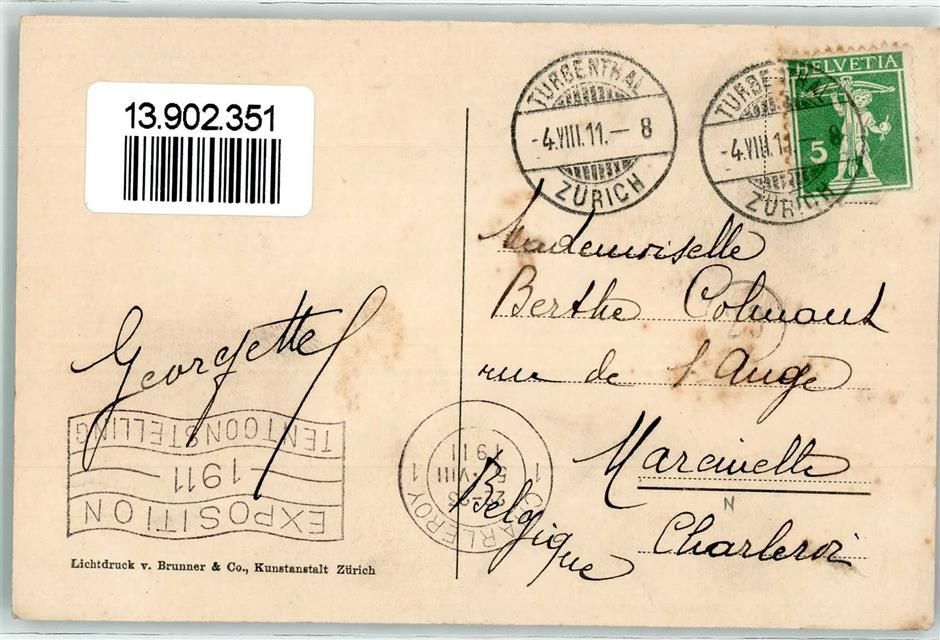 13.902.351
TURBENTHAL
-4.VIII.11.-8
ZÜRICH
TURBENTHAL
-4.VIII.11.-8
ZÜRICH
HELVETIA
5
Mademoiselle
Berthe Colmant
rue de l'Ange
Marcinelle
Charleroi
Belgique
N
Georgette
EXPOSITION
-1911-
TENTOONSTELLING
1 CHARLEROY 1
22-23
5.VIII
1911
Lichtdruck v. Brunner & Co., Kunstanstalt Zürich